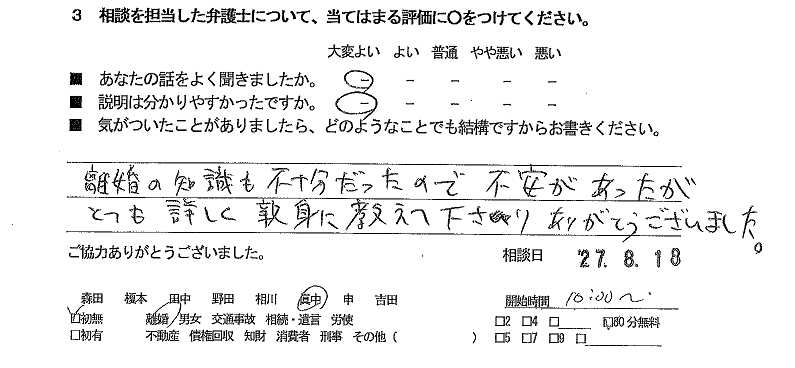 3 相談を担当した弁護士について、当てはまる評価に〇をつけてください。
大変よい よい 普通 やや悪い 悪い
■ あなたの話をよく聞きましたか。 - - - - -
■ 説明は分かりやすかったですか。 - - - - -
■ 気がついたことがありましたら、どのようなことでも結構ですからお書きください。
離婚の知識も不十分だったので 不安があったが
とても 詳しく 親身に 教えて下さり ありがとうございました。
ご協力ありがとうございました。 相談日 '27. 8. 18
森田 榎本 田中 野田 相川 眞中 申 吉田 開始時間 10:00〜
□初無 離婚 男女 交通事故 相続・遺言 労使 □2 □4 □ □30分無料
□初有 不動産 債権回収 知財 消費者 刑事 その他 ( ) □5 □7 □9 □